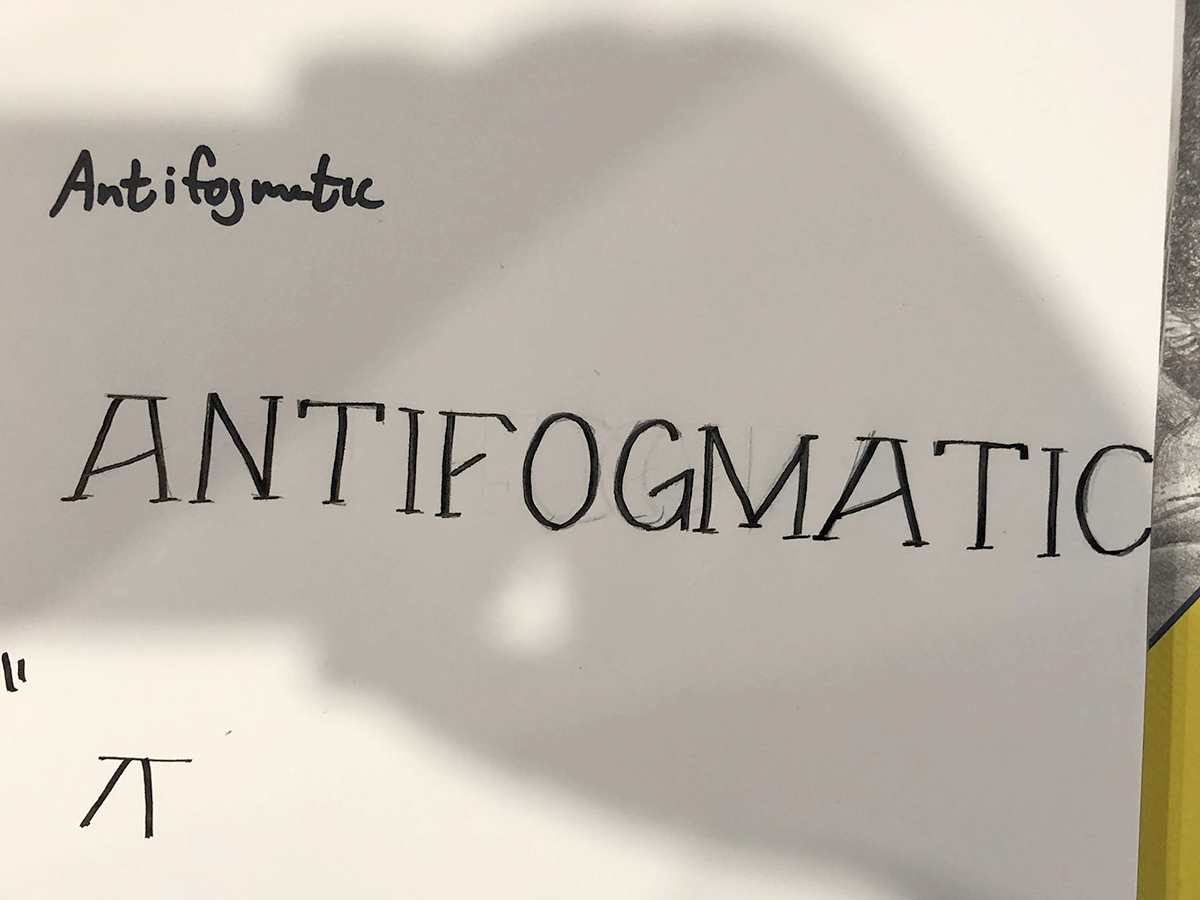 Antifogmatic
ANTIFOGMATIC